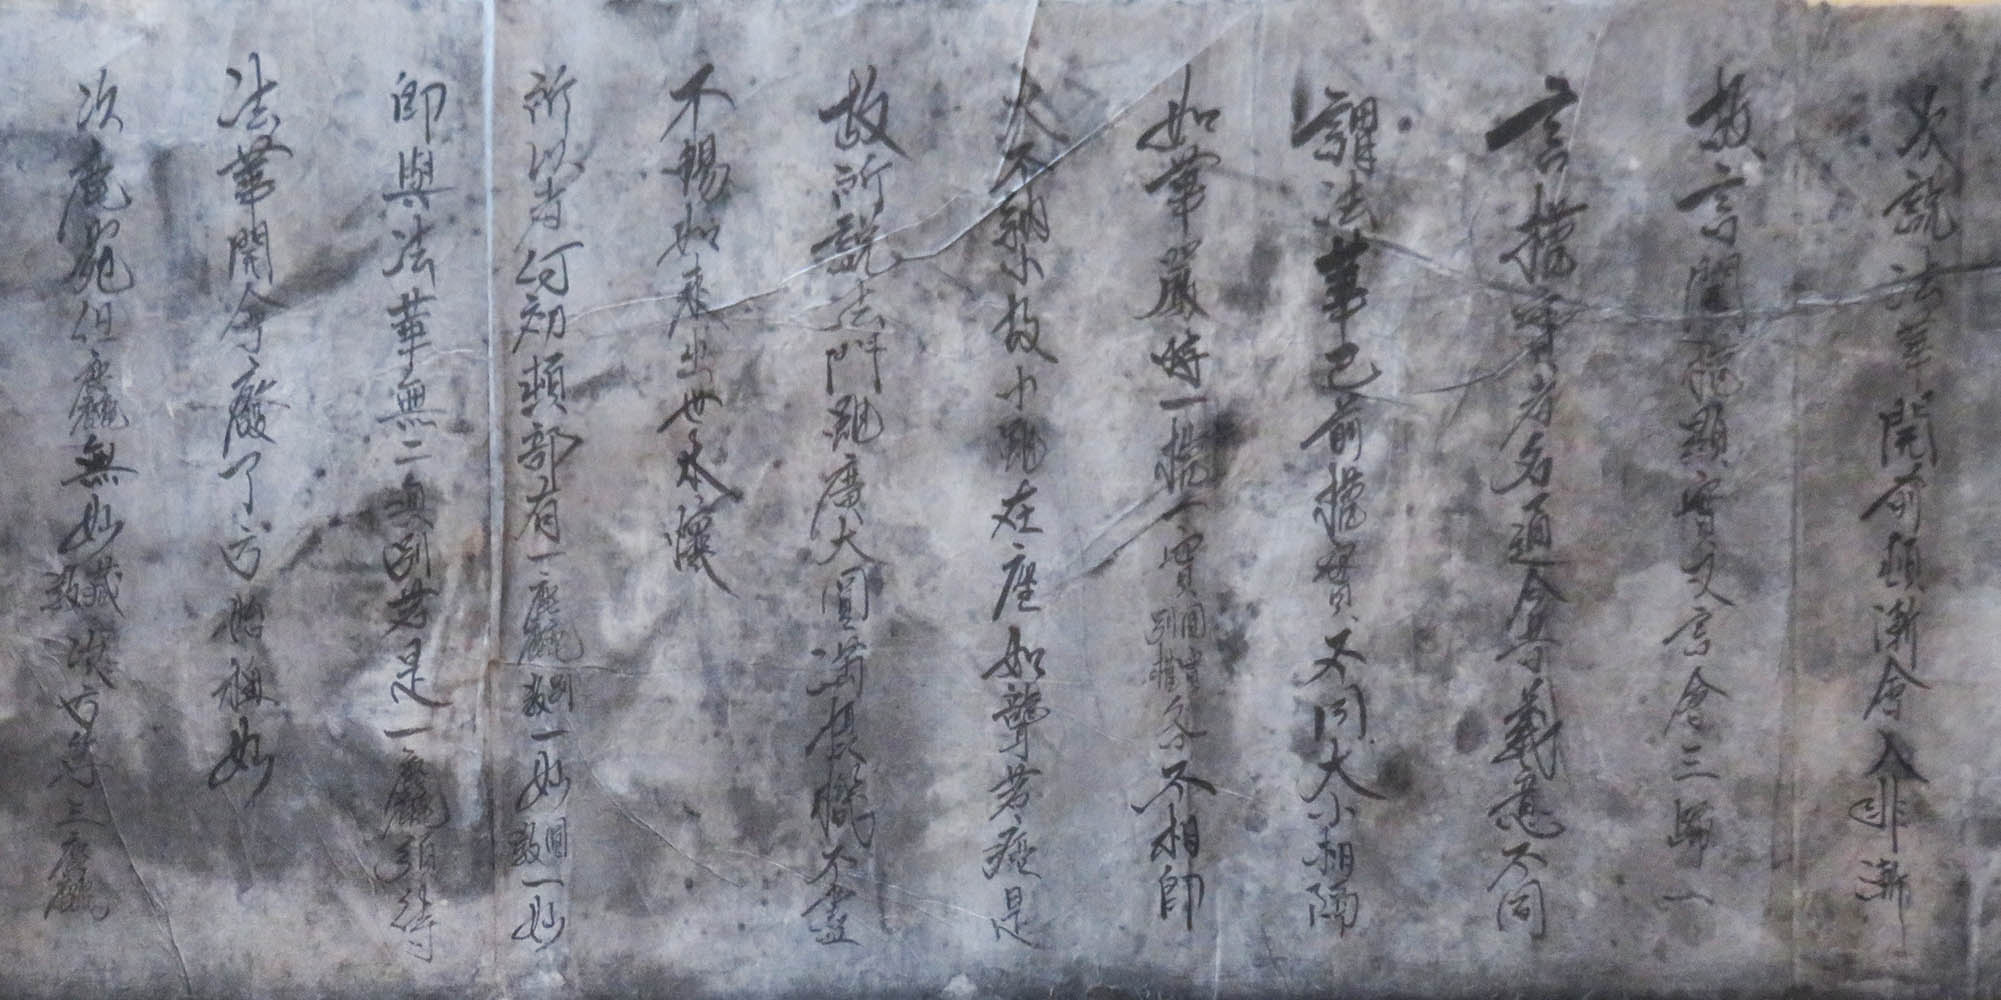 次說法華開前頓漸會入非漸
故言開權顯實又言會三歸一
言權實者名通今昔義意不同
謂法華已前權實不同大小相隔
如華嚴時一權一實圓實別權各不相即
大不納小故小雖在座如聾若瘂是
故所說法門雖廣大圓滿攝機不盡
不暢如來出世本懷
所以者何初頓部有一麤別教一妙圓教一妙
即與法華無二無別若是一麤須待
法華開會廢了方始稱妙
次鹿苑但麤無妙藏教次方等三麤